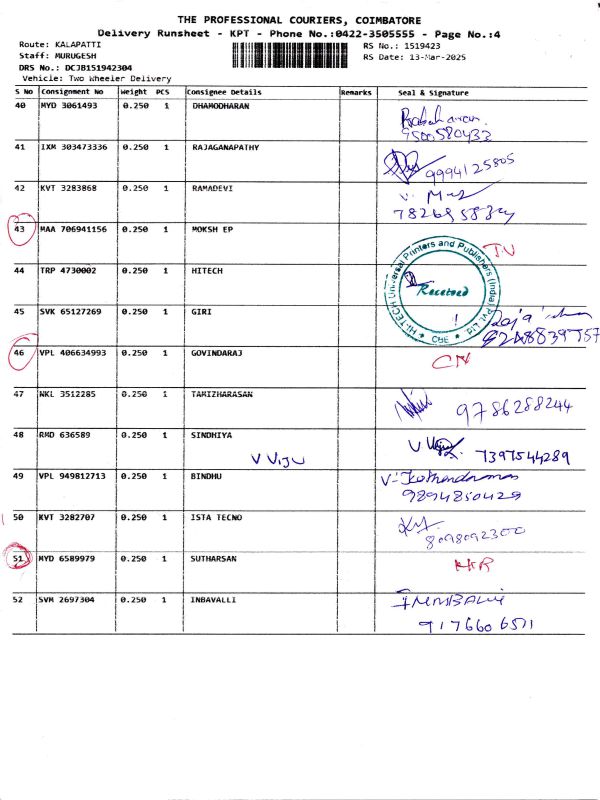 THE PROFESSIONAL COURIERS, COIMBATORE
Delivery Runsheet - KPT - Phone No.:0422-3505555 - Page No.:4
Route: KALAPATTI
RS No.: 1519423
Staff: MURUGESH
RS Date: 13-Mar-2025
DRS No.: DCJB151942304
Vehicle: Two Wheeler Delivery
S No Consignment No Weight PCS Consignee Details Remarks Seal & Signature
40 MYD 3061493 0.250 1 DHAMODHARAN
9500580432
41 IXM 303473336 0.250 1 RAJAGANAPATHY
9994125805
42 KVT 3283868 0.250 1 RAMADEVI
43 MAA 706941156 0.250 1 MOKSH EP
HI-TECH Universal Printers and Publishers (India) Pvt. Ltd. CBE
Received
44 TRP 4730002 0.250 1 HITECH
45 SVK 65127269 0.250 1 GIRI
46 VPL 406634993 0.250 1 GOVINDARAJ
CN
47 NKL 3512285 0.250 1 TAMIZHARASAN
9786288244
48 RMD 636589 0.250 1 SINDHIYA
V VIJU
7397544289
49 VPL 949812713 0.250 1 BINDHU
9894850429
50 KVT 3282707 0.250 1 ISTA TECNO
8098092300
51 MYD 6589979 0.250 1 SUTHARSAN
52 SVM 2697304 0.250 1 INBAVALLI
9176606511